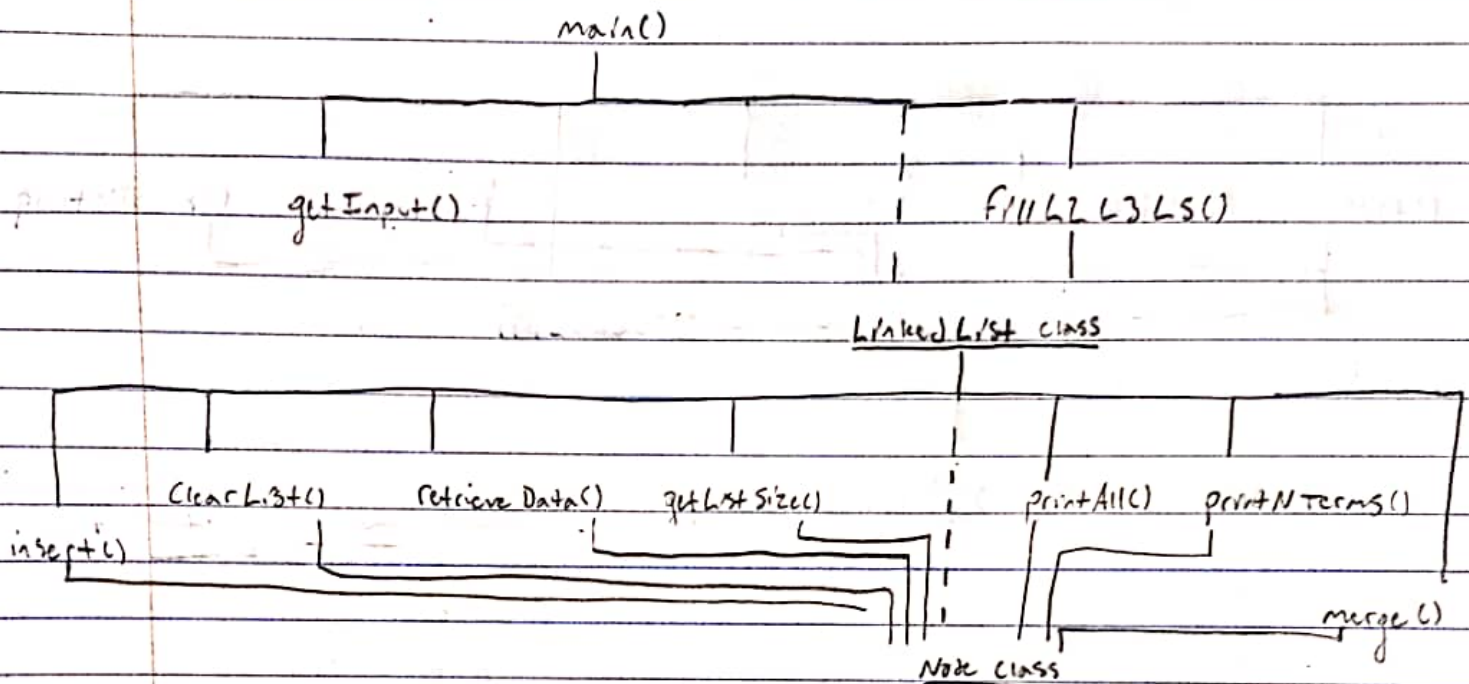 main()
getInput()
fillL2L3L5()
LinkedList class
clearList()
retrieveData()
getListSize()
printAll()
printNTerms()
insert()
merge()
Node class